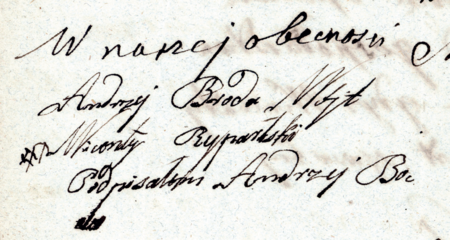 W naszej obecnosci
Andrzej Broda Wójt
Wicenty
Podpisałem Andrzej Boc